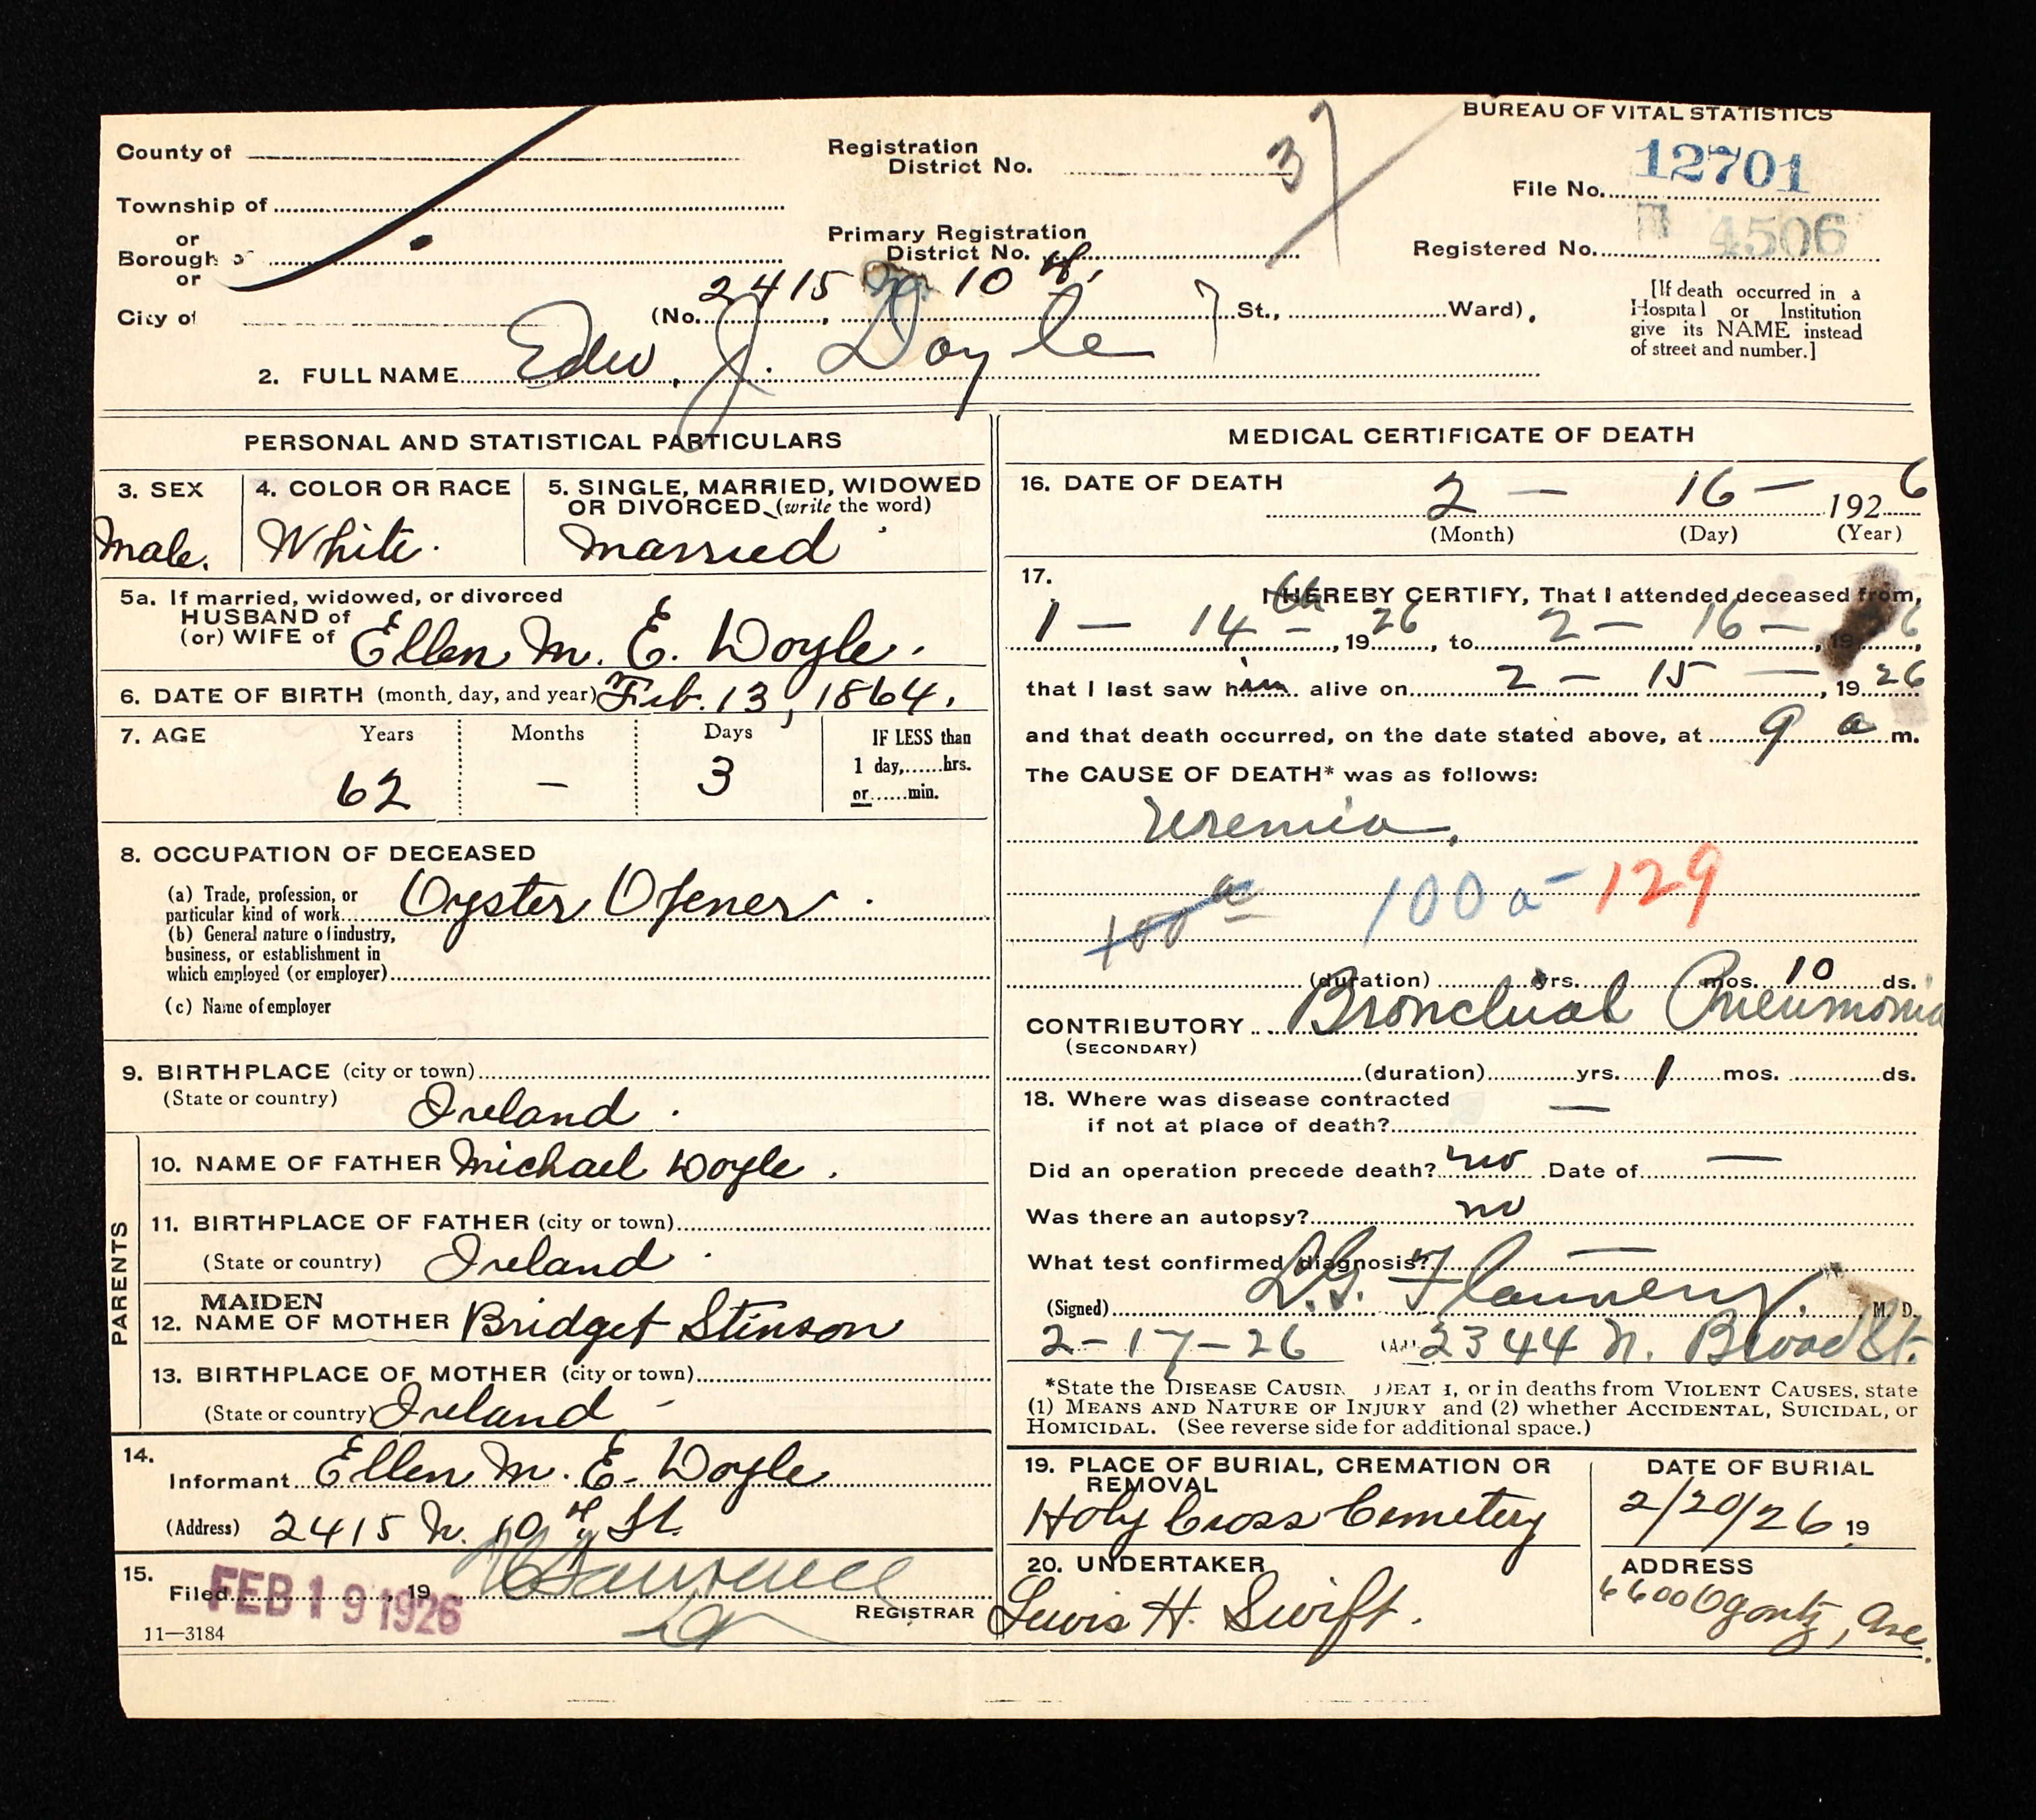 BUREAU OF VITAL STATISTICS
County of
Registration
District No.
37
12701
File No.
Township of
or
Primary Registration
District No.
4506
Registered No.
Borough of
or
City of
(No. 2415 N. 10 th St., Ward),
[If death occurred in a
Hospital or Institution
give its NAME instead
of street and number.]
2. FULL NAME Edw. J. Doyle
PERSONAL AND STATISTICAL PARTICULARS
3. SEX
Male.
4. COLOR OR RACE
White.
5. SINGLE, MARRIED, WIDOWED
OR DIVORCED (write the word)
Married
5a. If married, widowed, or divorced
HUSBAND of
(or) WIFE of Ellen M. E. Doyle.
6. DATE OF BIRTH (month, day, and year) Feb. 13, 1864.
7. AGE
Years
62
Months
—
Days
3
IF LESS than
1 day,......hrs.
or......min.
8. OCCUPATION OF DECEASED
(a) Trade, profession, or
particular kind of work Oyster Opener.
(b) General nature of industry,
business, or establishment in
which employed (or employer)
(c) Name of employer
9. BIRTHPLACE (city or town)
(State or country) Ireland.
PARENTS
10. NAME OF FATHER Michael Doyle.
11. BIRTHPLACE OF FATHER (city or town)
(State or country) Ireland.
MAIDEN
12. NAME OF MOTHER Bridget Stinson
13. BIRTHPLACE OF MOTHER (city or town)
(State or country) Ireland -
14.
Informant Ellen M. E. Doyle
(Address) 2415 N. 10 th St.
15.
Filed FEB 19 1926, 19
REGISTRAR
11—3184
MEDICAL CERTIFICATE OF DEATH
16. DATE OF DEATH 2 — 16 — 1926
(Month) (Day) (Year)
17.
I HEREBY CERTIFY, That I attended deceased from,
1 — 14 th —, 1926, to 2 — 16 —, 1926,
that I last saw him alive on 2 — 15 —, 1926
and that death occurred, on the date stated above, at 9 a m.
The CAUSE OF DEATH* was as follows:
Uremia.
100a 100a - 129
(duration) yrs. mos. 10 ds.
CONTRIBUTORY Bronchial Pneumonia
(SECONDARY)
(duration) yrs. 1 mos. ds.
18. Where was disease contracted
if not at place of death? —
Did an operation precede death? no Date of —
Was there an autopsy? no
What test confirmed diagnosis? —
(Signed) M. D.
2-17-26 2344 N. Broad St.
*State the DISEASE CAUSING DEATH, or in deaths from VIOLENT CAUSES, state
(1) MEANS AND NATURE OF INJURY and (2) whether ACCIDENTAL, SUICIDAL, or
HOMICIDAL. (See reverse side for additional space.)
19. PLACE OF BURIAL, CREMATION OR
REMOVAL
Holy Cross Cemetery
DATE OF BURIAL
2/20/26 19
20. UNDERTAKER
Lewis H. Swift.
ADDRESS
6600 Ogontz, Ave.